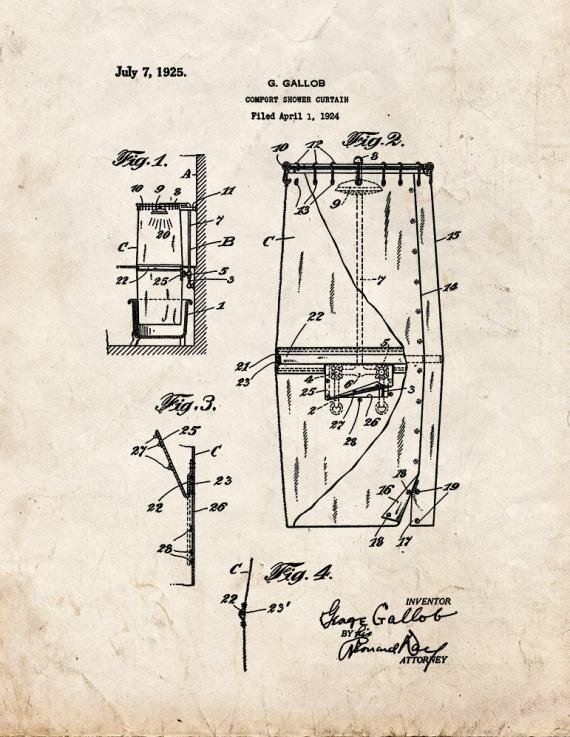 July 7, 1925.
G. GALLOB
COMFORT SHOWER CURTAIN
Filed April 1, 1924
Fig. 1.
A
10 9 8 11
7
20
C
B
5
22 25 3
1
Fig. 2.
10 12 8
13
9
C
15
7
14
22
21
23
5
4
6
25
3
2
27
26
28
18
16
19
18
17
Fig. 3.
25
C
27
23
22
26
28
Fig. 4.
C
22
23'
INVENTOR
George Gallob
BY his
ATTORNEY